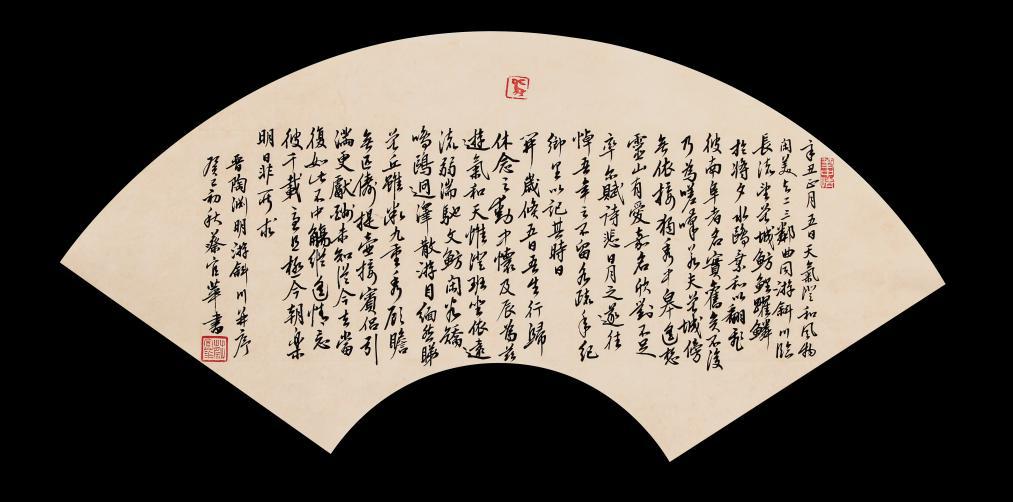 辛丑正月五日天氣澄和風物
閑美與二三鄰曲同游斜川臨
長流望曾城魴鯉躍鱗
於將夕水鷗乘和以翻飛
彼南阜者名實舊矣不復
乃為嗟嘆若夫曾城傍
無依接獨秀中皋遙想
靈山有愛嘉名欣對不足
率爾賦詩悲日月之遂往
悼吾年之不留各疏年紀
鄉里以記其時日
開歲倏五日吾生行歸
休念之動中懷及辰為茲
遊氣和天惟澄班坐依遠
流弱湍馳文魴閑谷矯
鳴鷗迥澤散游目緬然睇
曾丘雖微九重秀顧瞻
無匹儔提壺接賓侶引
滿更獻酬未知從今去當
復如此不中觴縱遙情忘
彼千載憂且極今朝樂
明日非所求
晉陶淵明游斜川并序
癸巳初秋蔡官華書